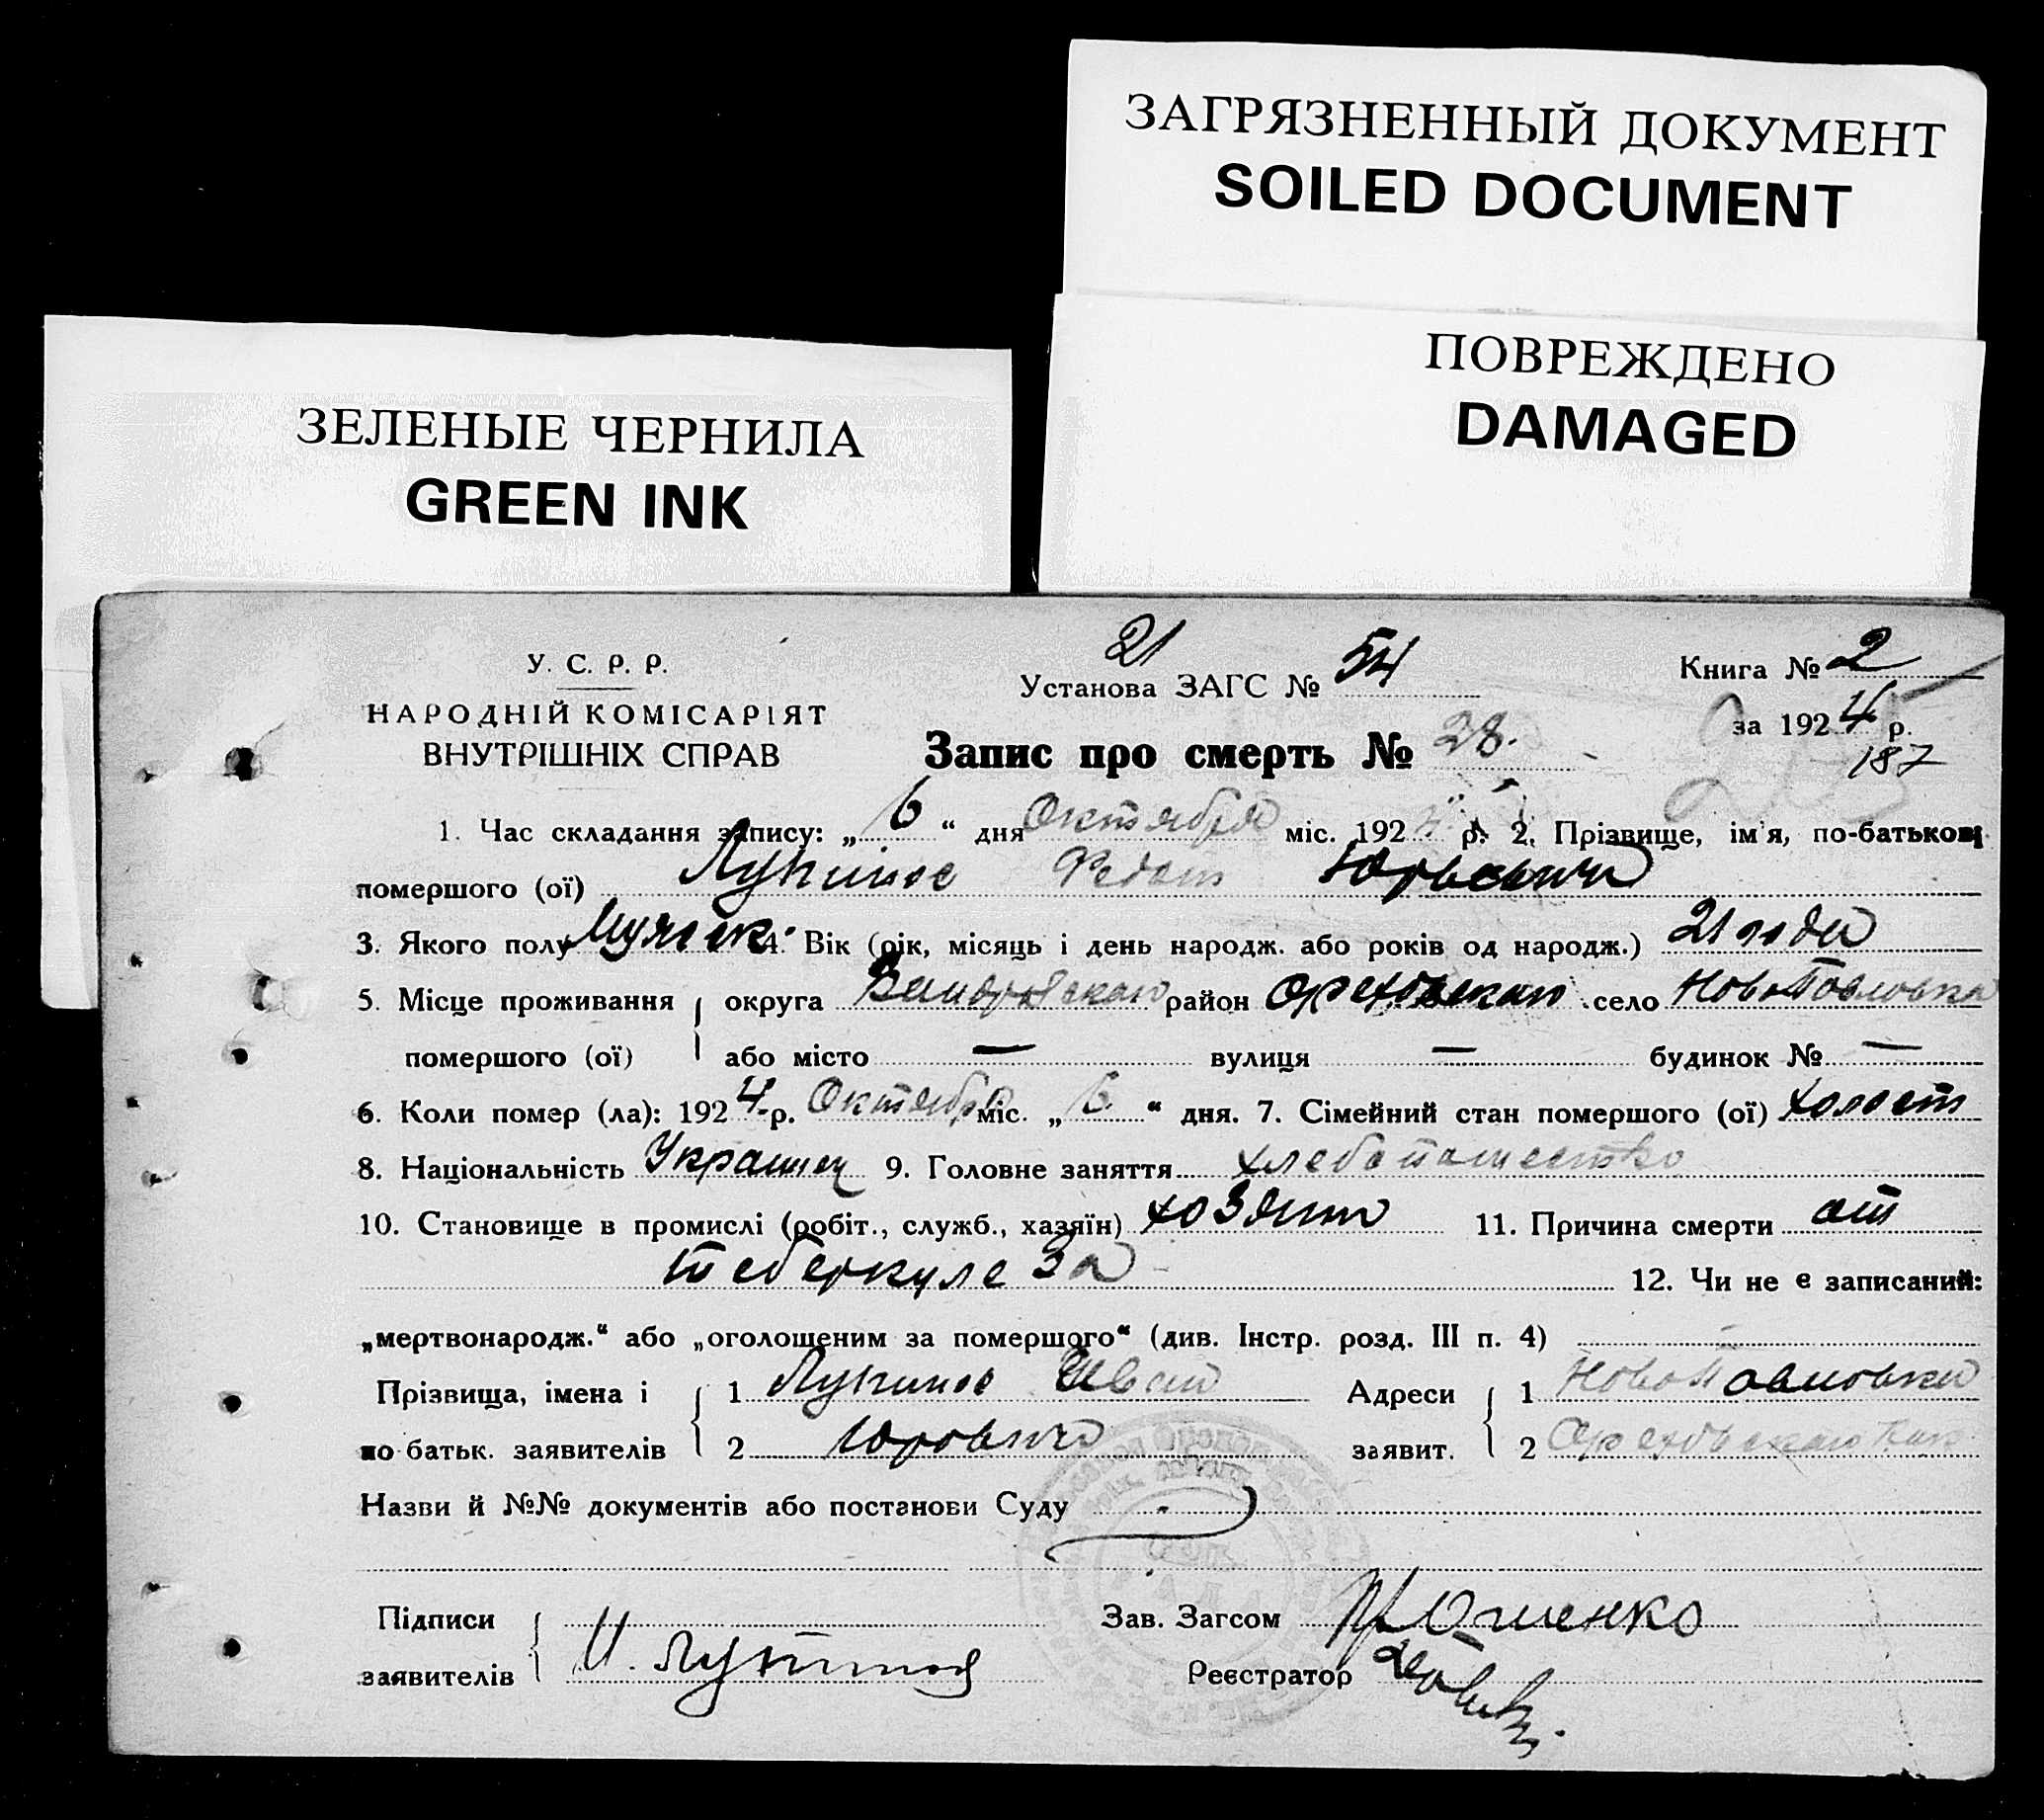 ЗАГРЯЗНЕННЫЙ ДОКУМЕНТ
SOILED DOCUMENT
ПОВРЕЖДЕНО
DAMAGED
ЗЕЛЕНЫЕ ЧЕРНИЛА
GREEN INK
У. С. Р. Р.
НАРОДНІЙ КОМІСАРІЯТ
ВНУТРІШНІХ СПРАВ
21
Установа ЗАГС № 54
Книга № 2
за 1924 р.
187
Запис про смерть № 28.
1. Час складання запису: „ 6 “ дня Октября міс. 1924 р. 2. Прізвище, ім'я, по-батькові
помершого (ої) Лукинов Федот Юрьевич
3. Якого полу Мужск. 4. Вік (рік, місяць і день народж. або років од народж.) 21 года
5. Місце проживання округа район Ореховская село НовоПавловка
помершого (ої) або місто — вулиця — будинок № —
6. Коли помер (ла): 1924 р. Октября міс. „ 6 “ дня. 7. Сімейний стан помершого (ої) холост
8. Національність Украинец 9. Головне заняття хлебопашество
10. Становище в промислі (робіт., служб., хазяїн) хозяин 11. Причина смерти от
теберкулеза 12. Чи не є записаний:
„мертвонародж.“ або „оголошеним за помершого“ (див. Інстр. розд. III п. 4)
Прізвища, імена і 1 Лукинов Иван Адреси 1 НовоПавловка
по батьк. заявителів 2 Юрович заявит. 2 Ореховская
Назви й №№ документів або постанови Суду
Підписи Зав. Загсом
заявителів И. Лукинов Реєстратор